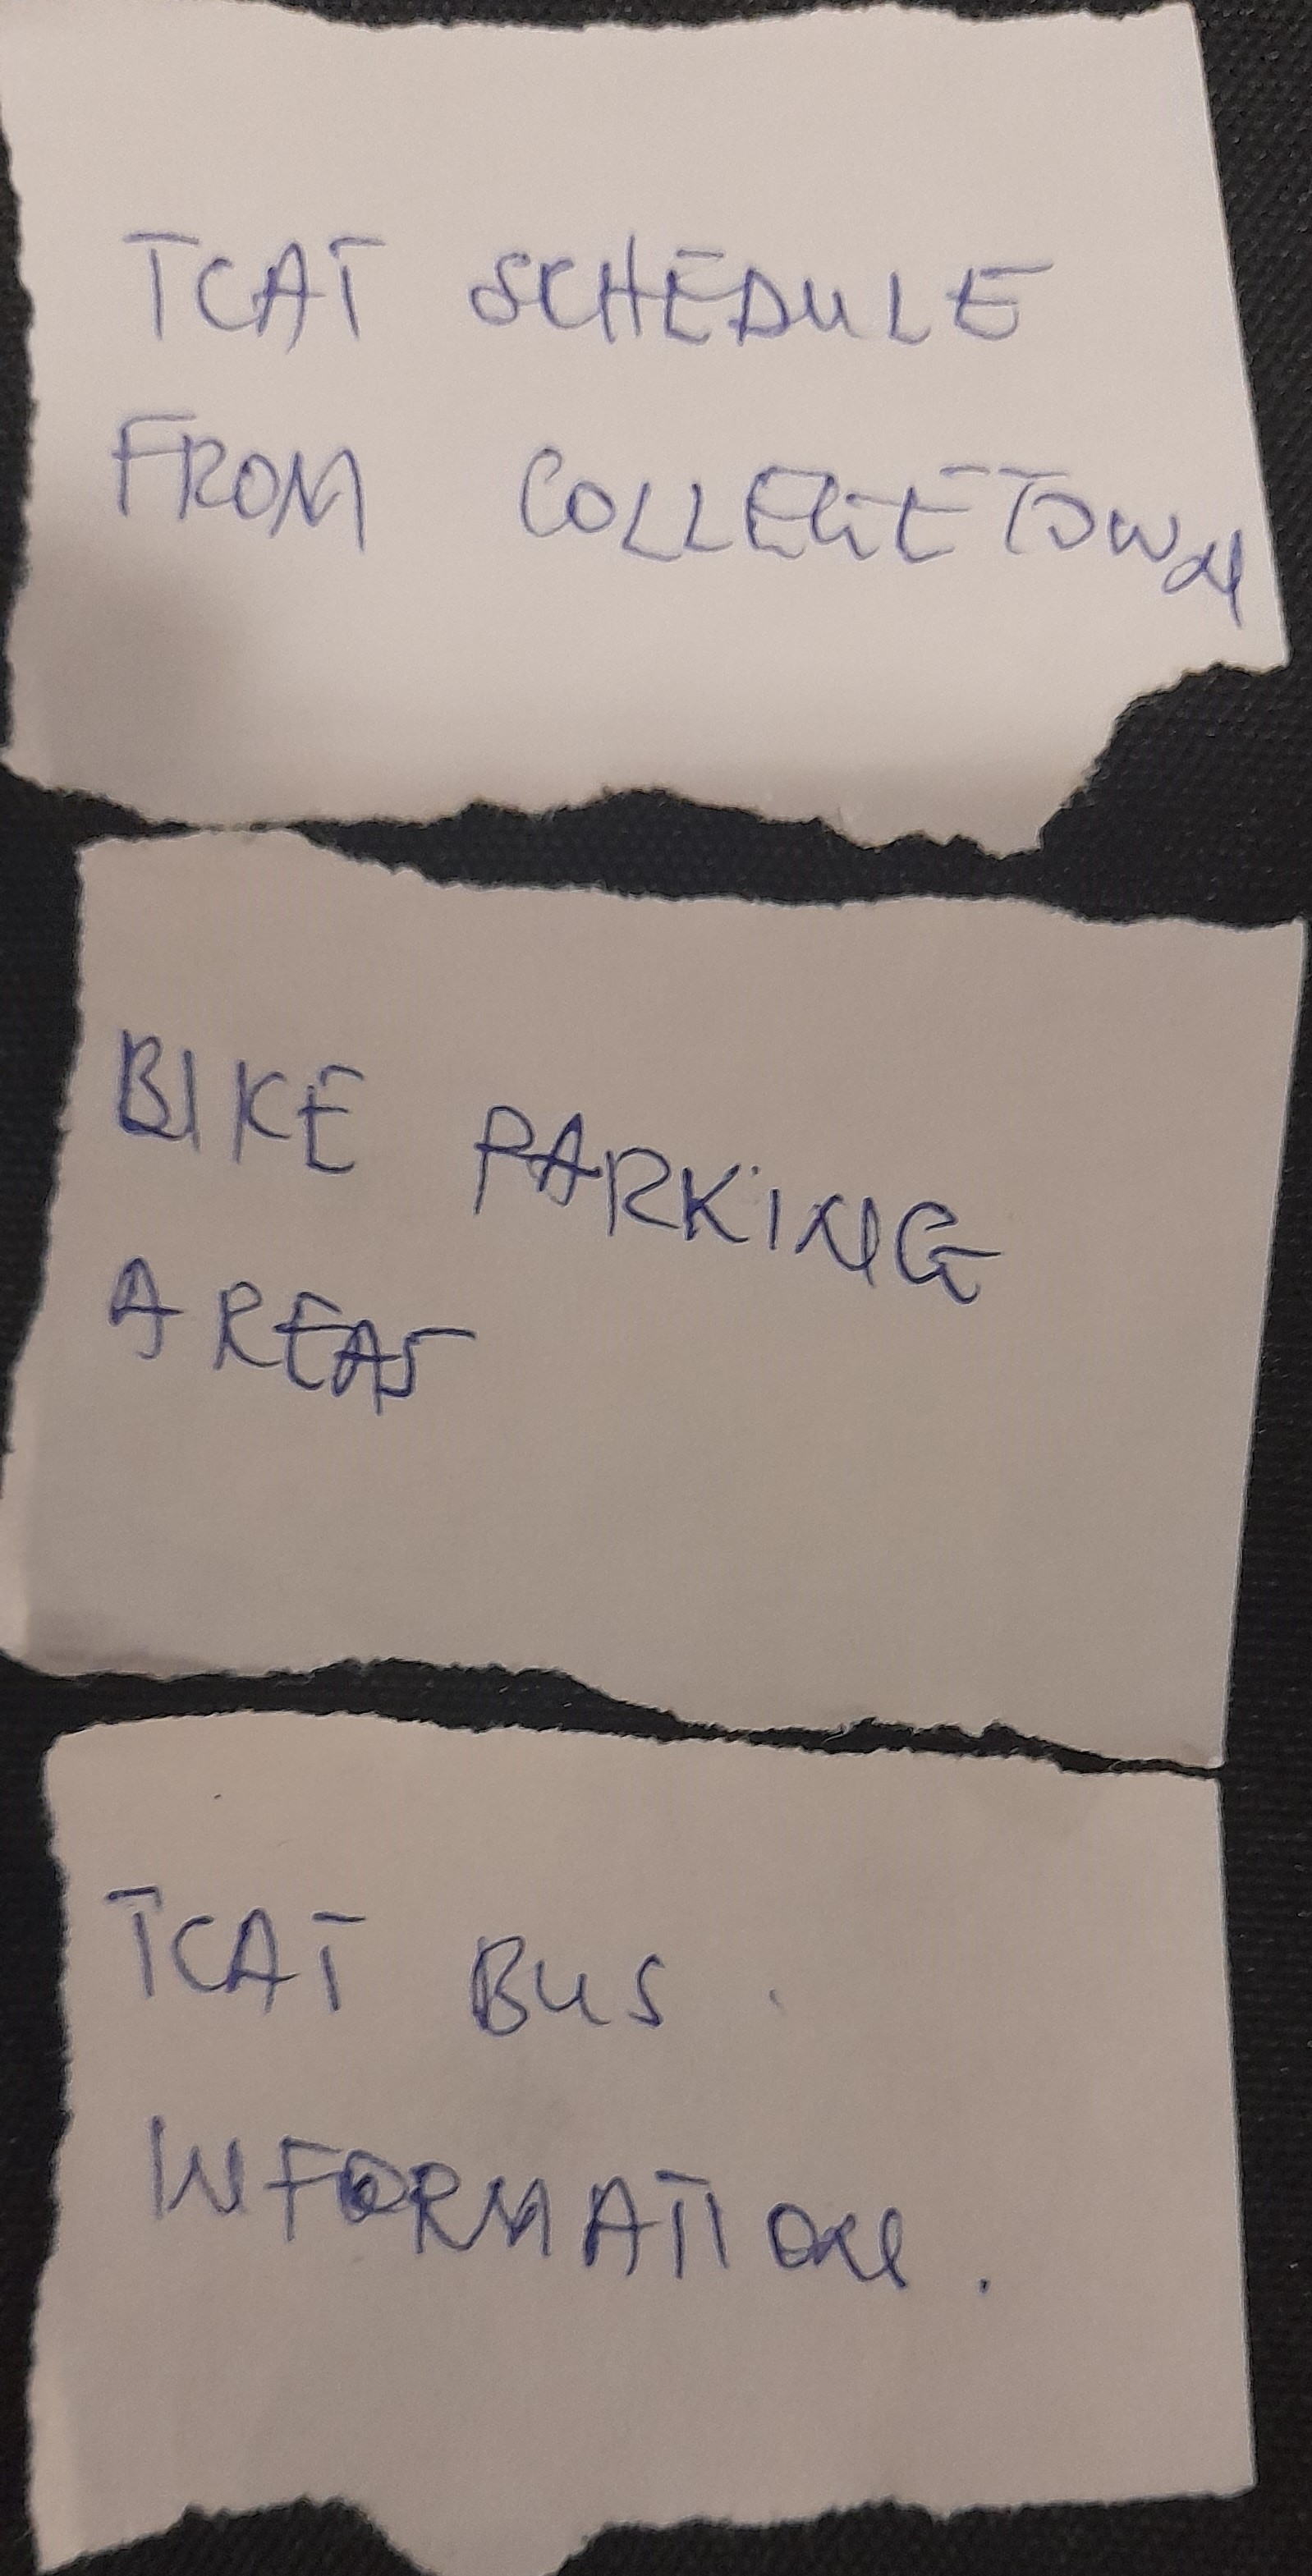 TCAT SCHEDULE
FROM COLLEGETOWN
BIKE PARKING
AREAS
TCAT BUS
INFORMATION.